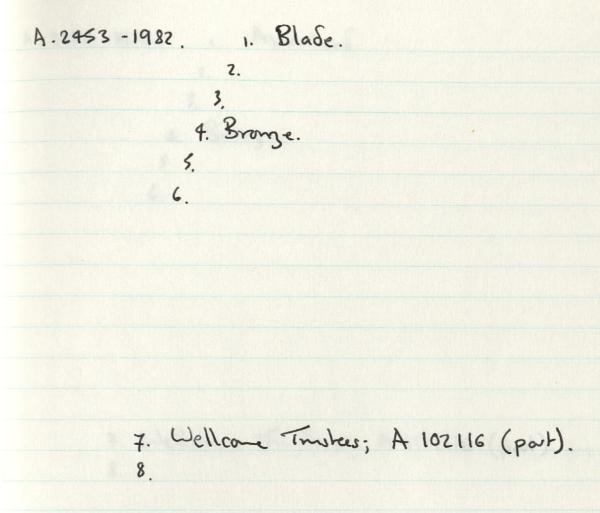 A.2453-1982. 1. Blade.
2.
3.
4. Bronze.
5.
6.
7. Wellcome Trustees; A 102116 (part).
8.